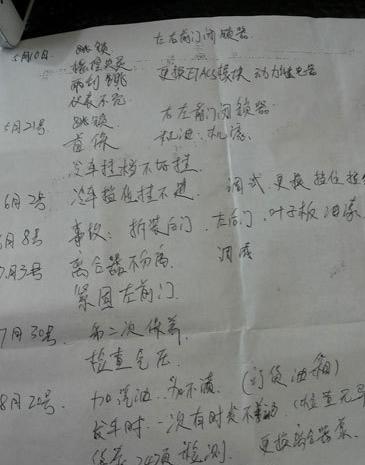 5月10日. 跳锁 左右前门闭锁器
摇控失灵
雨刮跳 更换ETACS模块 动力继电器
仪表不亮
5月21号 跳锁 右左前门闭锁器
首保 机油.机滤.
冷车挂档不好挂.
6月2号 冷车档位挂不进. 调式.更换档位拉
6月8号 事故: 拆装后门.左后门.叶子板油漆
7月3号 离合器不分离. 调感
紧固左前门.
7月30号 第二次保养.
检查气压.
8月20号. 加汽油.加不满. (订货油箱)
发车时.一次有时发不着 (检查无
247项检测. 更换离合器泵.